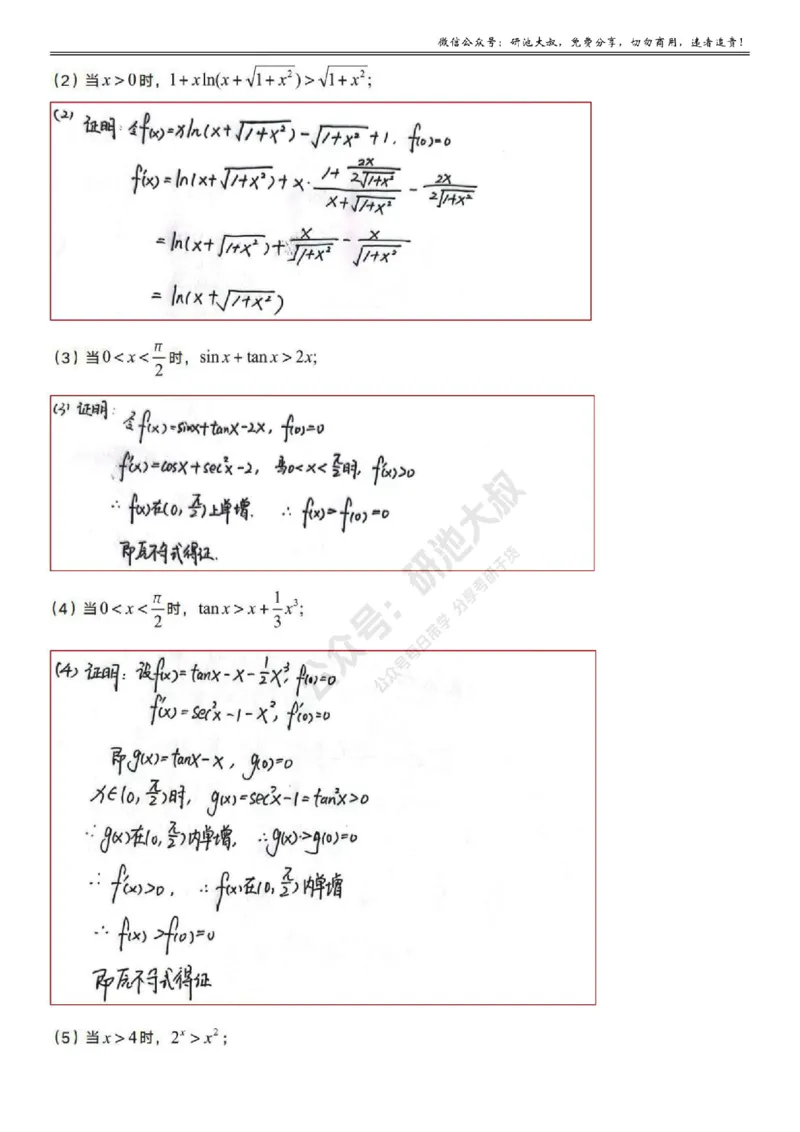 微信公众号：研池大叔，免费分享，切勿商用，违者追责！
（2）当x>0时，1+xln(x+√(1+x²))>√(1+x²);
(2) 证明：令f(x)=xln(x+√(1+x²))-√(1+x²)+1, f(0)=0
f'(x)=ln(x+√(1+x²))+x·(1+2x/(2√(1+x²)))/(x+√(1+x²))-2x/(2√(1+x²))
=ln(x+√(1+x²))+x/√(1+x²)-x/√(1+x²)
=ln(x+√(1+x²))
（3）当0<x<π/2时，sinx+tanx>2x;
(3) 证明：
令f(x)=sinx+tanx-2x, f(0)=0
f'(x)=cosx+sec²x-2, 当0<x<π/2时, f'(x)>0
∴f(x)在(0,π/2)上单增. ∴f(x)>f(0)=0
即原不等式得证.
（4）当0<x<π/2时，tanx>x+1/3x³;
(4) 证明：设f(x)=tanx-x-1/2x³, f(0)=0
f'(x)=sec²x-1-x², f'(0)=0
即g(x)=tanx-x, g(0)=0
x∈(0,π/2)时, g(x)=sec²x-1=tan²x>0
∵g(x)在(0,π/2)内单增, ∴g(x)>g(0)=0
∴f'(x)>0, ∴f(x)在(0,π/2)内单增
∴f(x)>f(0)=0
即原不等式得证
（5）当x>4时，2ˣ>x²;
公众号：研池大叔
公众号每日带学 分享考研干货